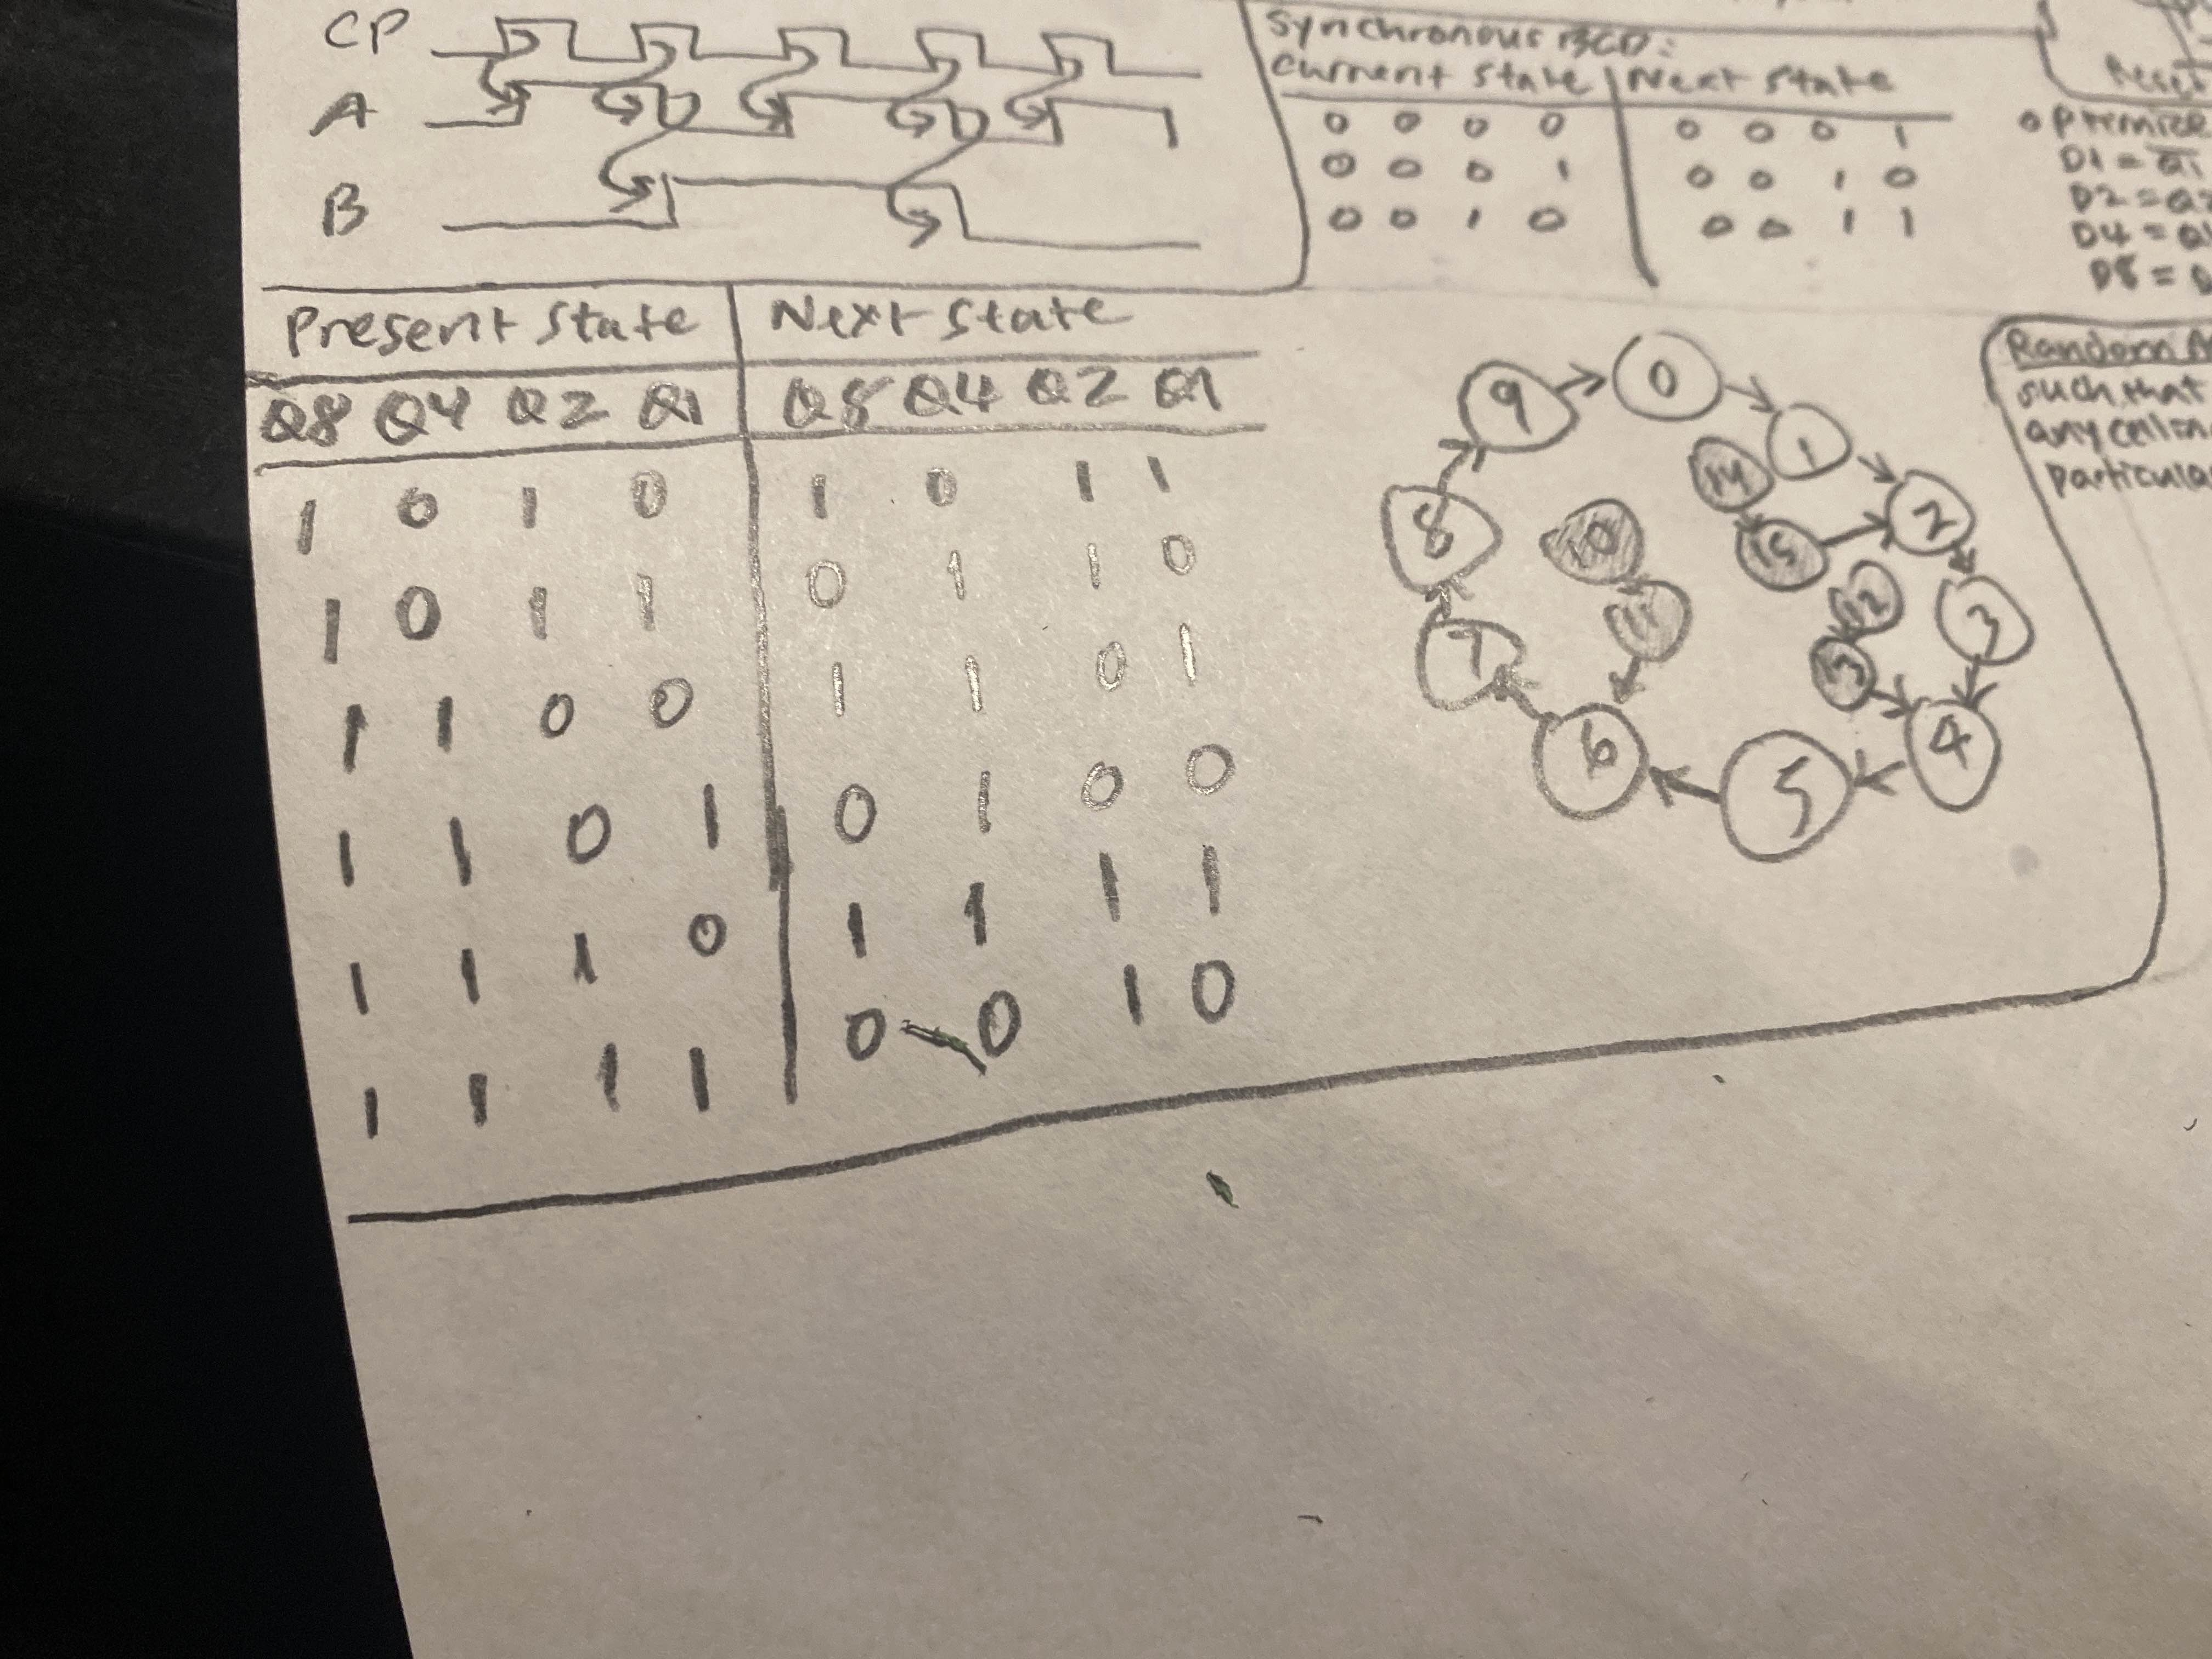 CP
A
B
Synchronous BCD:
Current State | Next State
0 0 0 0 0 0 0 1
0 0 0 1 0 0 1 0
0 0 1 0 0 0 1 1
Reset
Optimize
D1 = Q1
D2 =
D4 =
D8 =
Present State | Next State
Q8 Q4 Q2 Q1 Q8 Q4 Q2 Q1
1 0 1 0 1 0 1 1
1 0 1 1 0 1 1 0
1 1 0 0 1 1 0 1
1 1 0 1 0 1 0 0
1 1 1 0 1 1 1 1
1 1 1 1 0 0 1 0
9 0 1
14
8 10 15 2
7 11 12 3
13
6 5 4
Random
such that
any cell in
particular